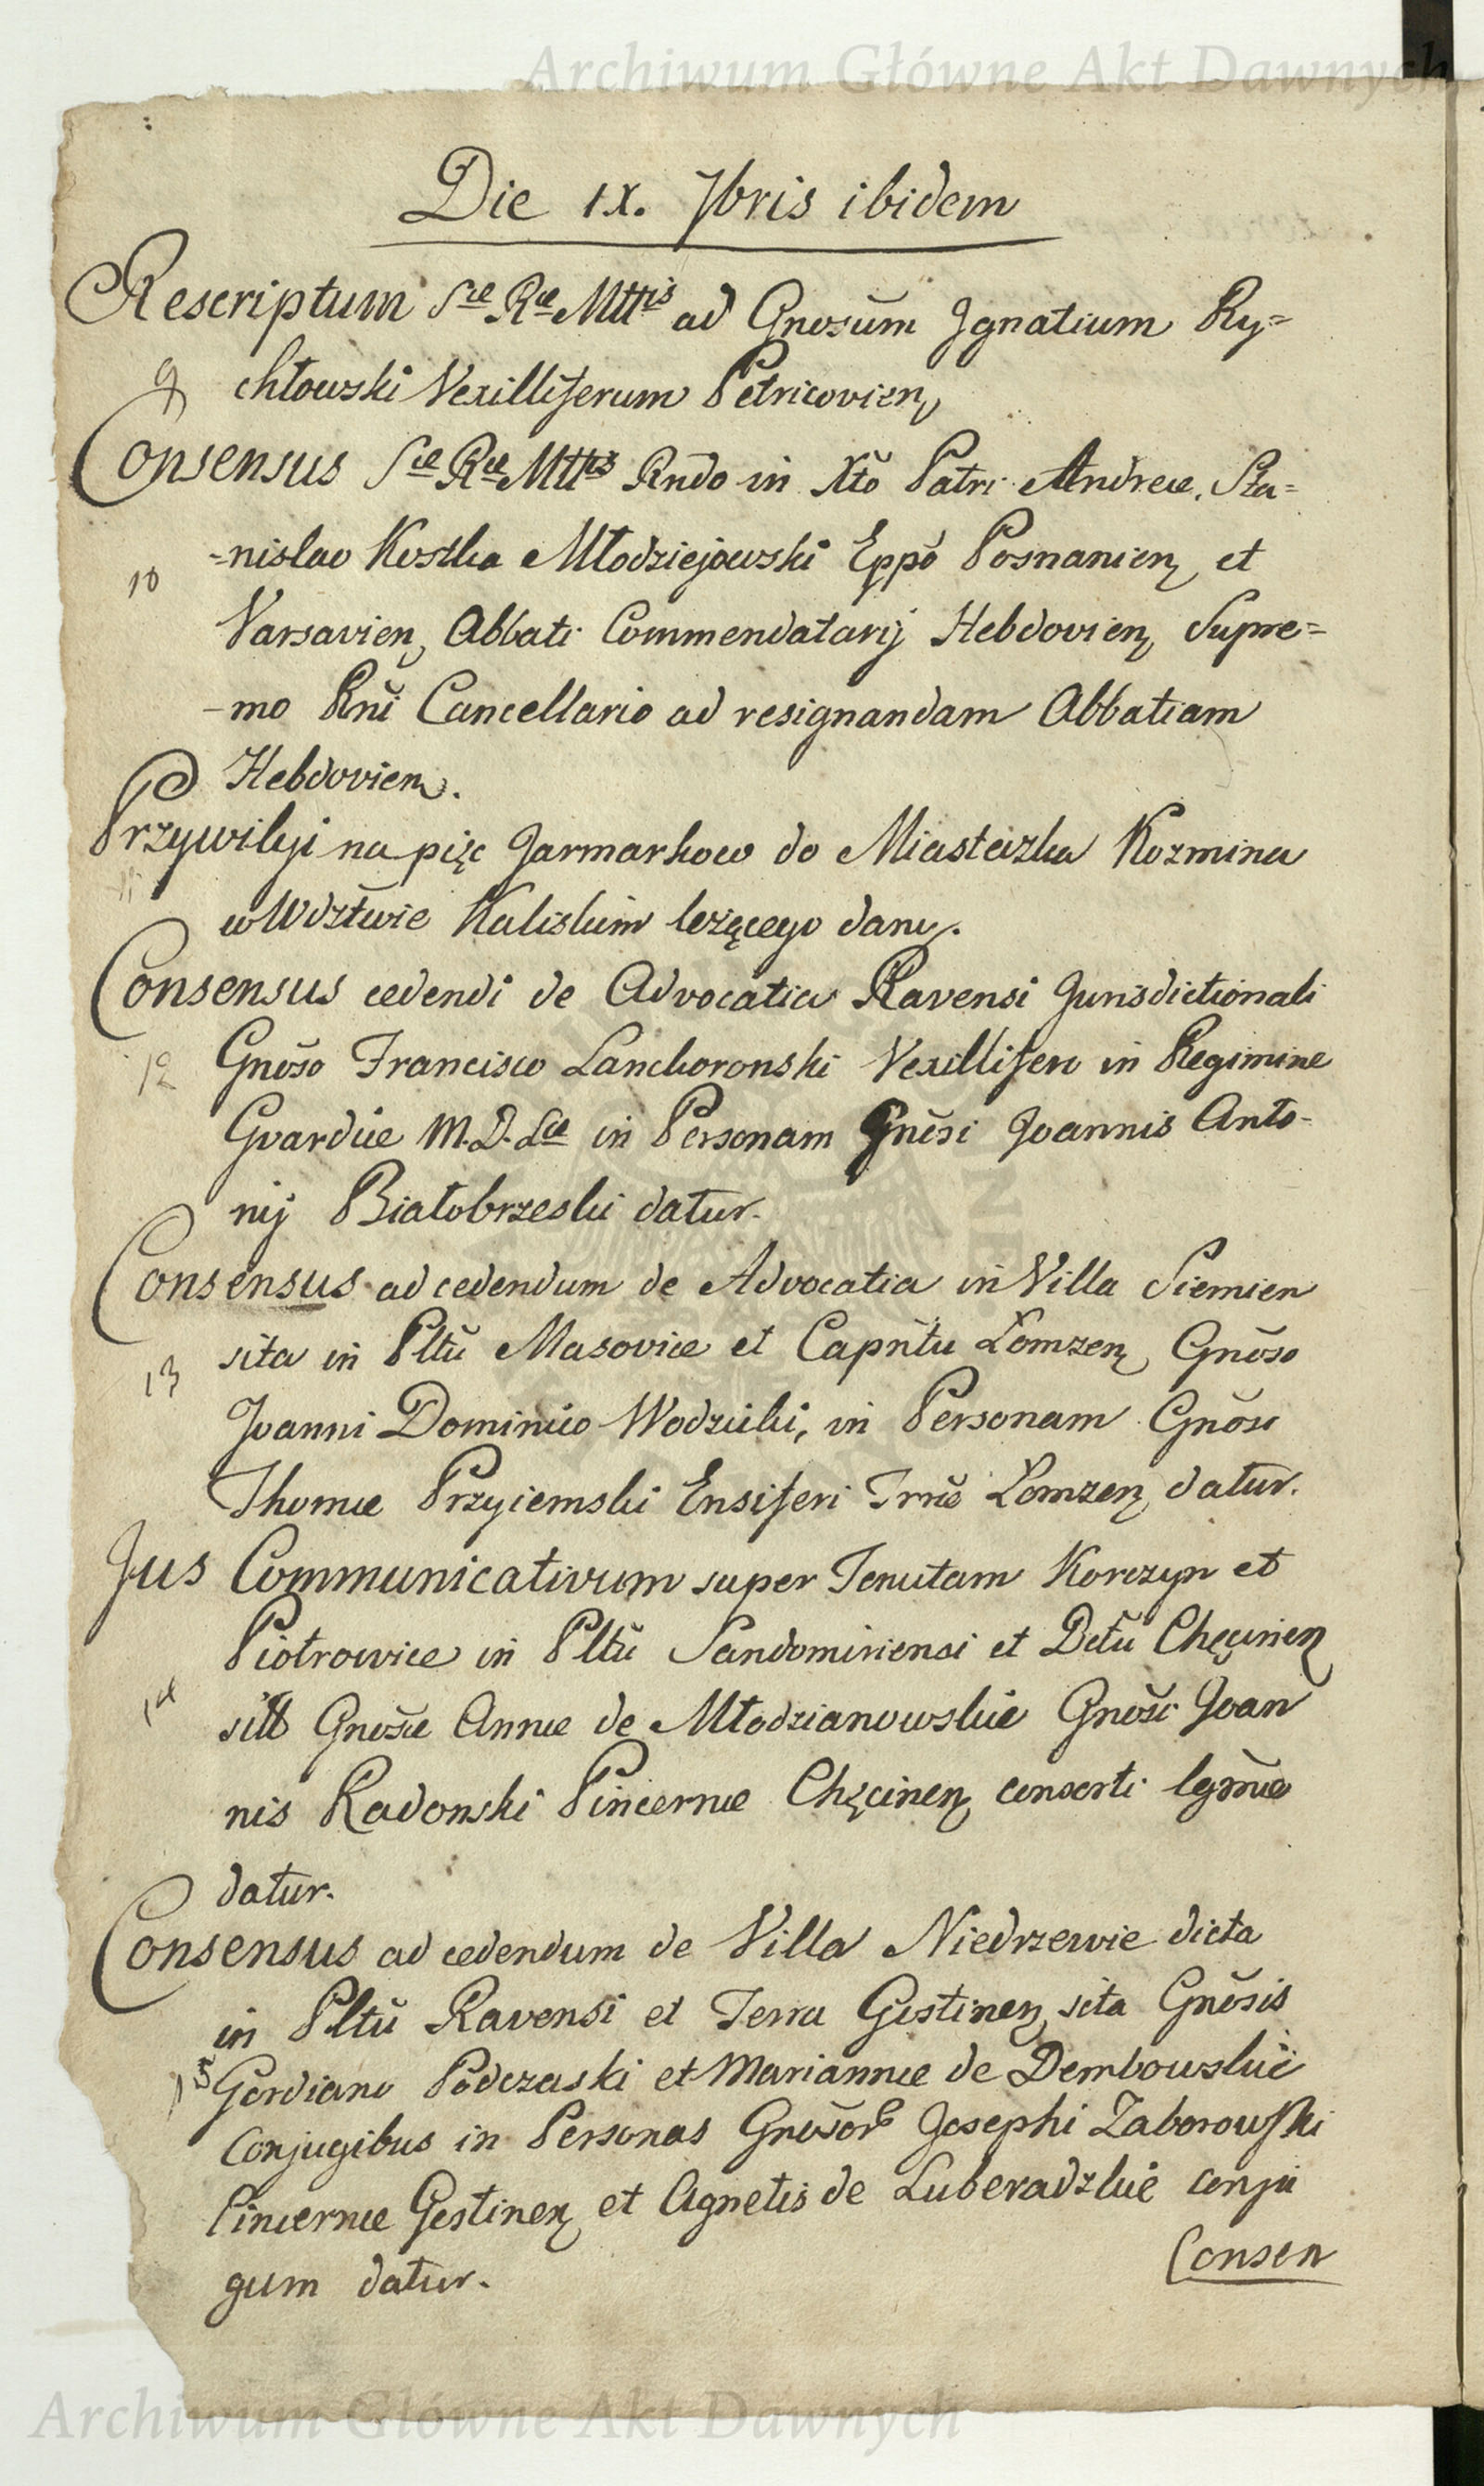 Archiwum Główne Akt Dawnych
Die IX. 7bris ibidem
Rescriptum Sæ Ræ Mttis ad Gnosum Ignatium Ry=
9 chłowski Vexilliferum Petricovien
Consensus Sæ Ræ Mttis Rndo in Xto Patri Andreæ, Sta=
=nislao Kostka Młodziejowski Eppo Posnanien et
10
Varsavien, Abbati Commendatarij Hebdovien, Supre=
-mo Rni Cancellario ad resignandam Abbatiam
Hebdovien.
Przywiley na pięc Jarmarkow do Miasteczka Kozmina
11
w Wdztwie Kaliskim leżącego dany.
Consensus cedendi de Advocatia Ravensi Jurisdictionali
12 Gnoso Francisco Lanckoronski Vexillifero in Regimine
Gvardiæ M.D.Læ in Personam Gnosi Joannis Anto-
nij Białobrzeski datur.
Consensus ad cedendum de Advocatia in Villa Siemien
sita in Pltu Masoviæ et Capntu Łomzen, Gnoso
13
Joanni Dominico Wodzicki, in Personam Gnosi
Thomæ Przyiemski Ensiferi Trræ Łomzen, datur.
Jus Communicativum super Tenutam Korczyn et
Piotrowice in Pltu Sandomiriensi et Dctu Chęcinen
14 sitt Gnosæ Annæ de Młodzianowskie Gnosi Joan
nis Radonski Pincernæ Chęcinen, consorti lgmæ
datur.
Consensus ad cedendum de Villa Niedrzewie dicta
in Pltu Ravensi et Terra Gostinen, sita Gnosis
15 Gordiano Podczaski et Mariannæ de Dembowskie
Conjugibus in Personas Gnosor Josephi Zaborowski
Pincernæ Gostinen, et Agnetis de Luberadzkie conju
gum datur.
Consen
Archiwum Główne Akt Dawnych